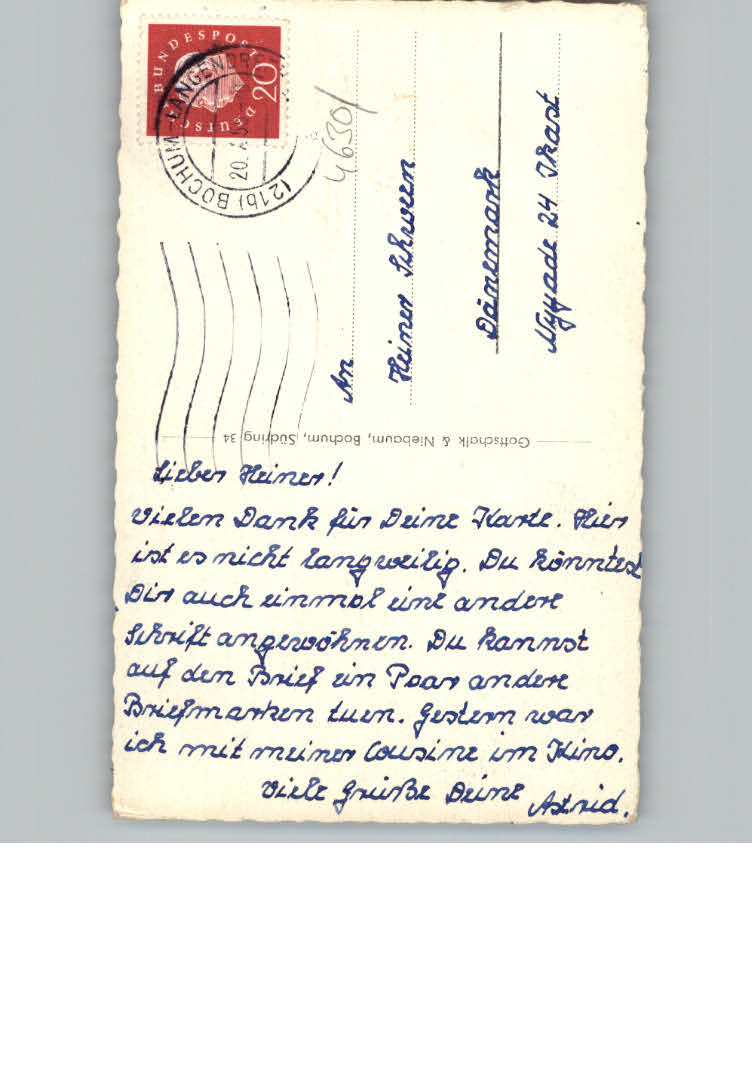 DEUTSCHE BUNDESPOST
20
(21b) BOCHUM-LANGENDR
20.
4630/
An
Heiner Schween
Dänemark
Nygade 24 Ikast
Gottschalk & Niebaum, Bochum, Südring 34
Lieber Heiner!
Vielen Dank für Deine Karte. Hier
ist es nicht langweilig. Du könntest
Dir auch einmal eine andere
Schrift angewöhnen. Du kannst
auf den Brief ein Paar andere
Briefmarken tuen. Gestern war
ich mit meiner Cousine im Kino.
Viele Grüße Deine Astrid.